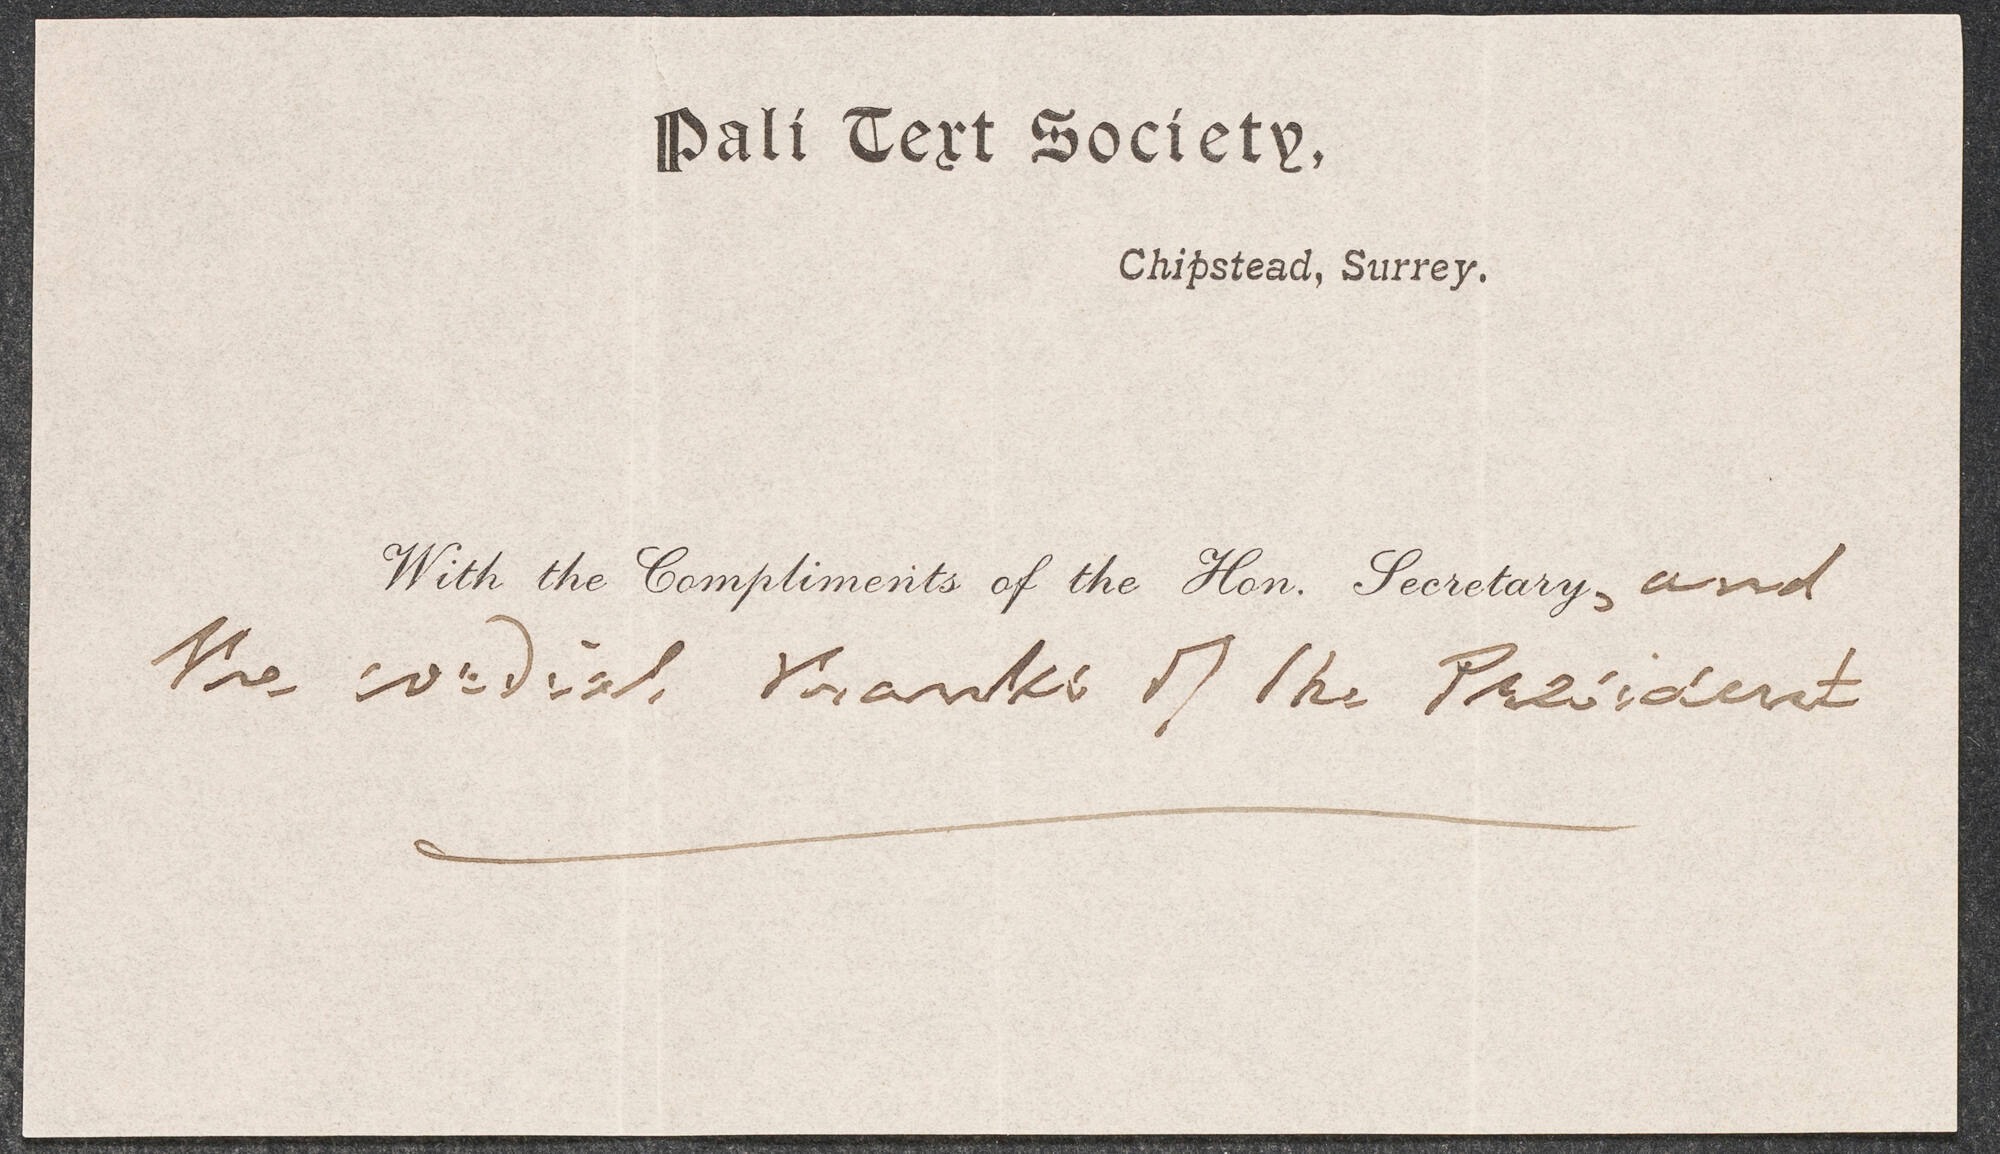 Pali Text Society,
Chipstead, Surrey.
With the Compliments of the Hon. Secretary, and
the cordial thanks of the President